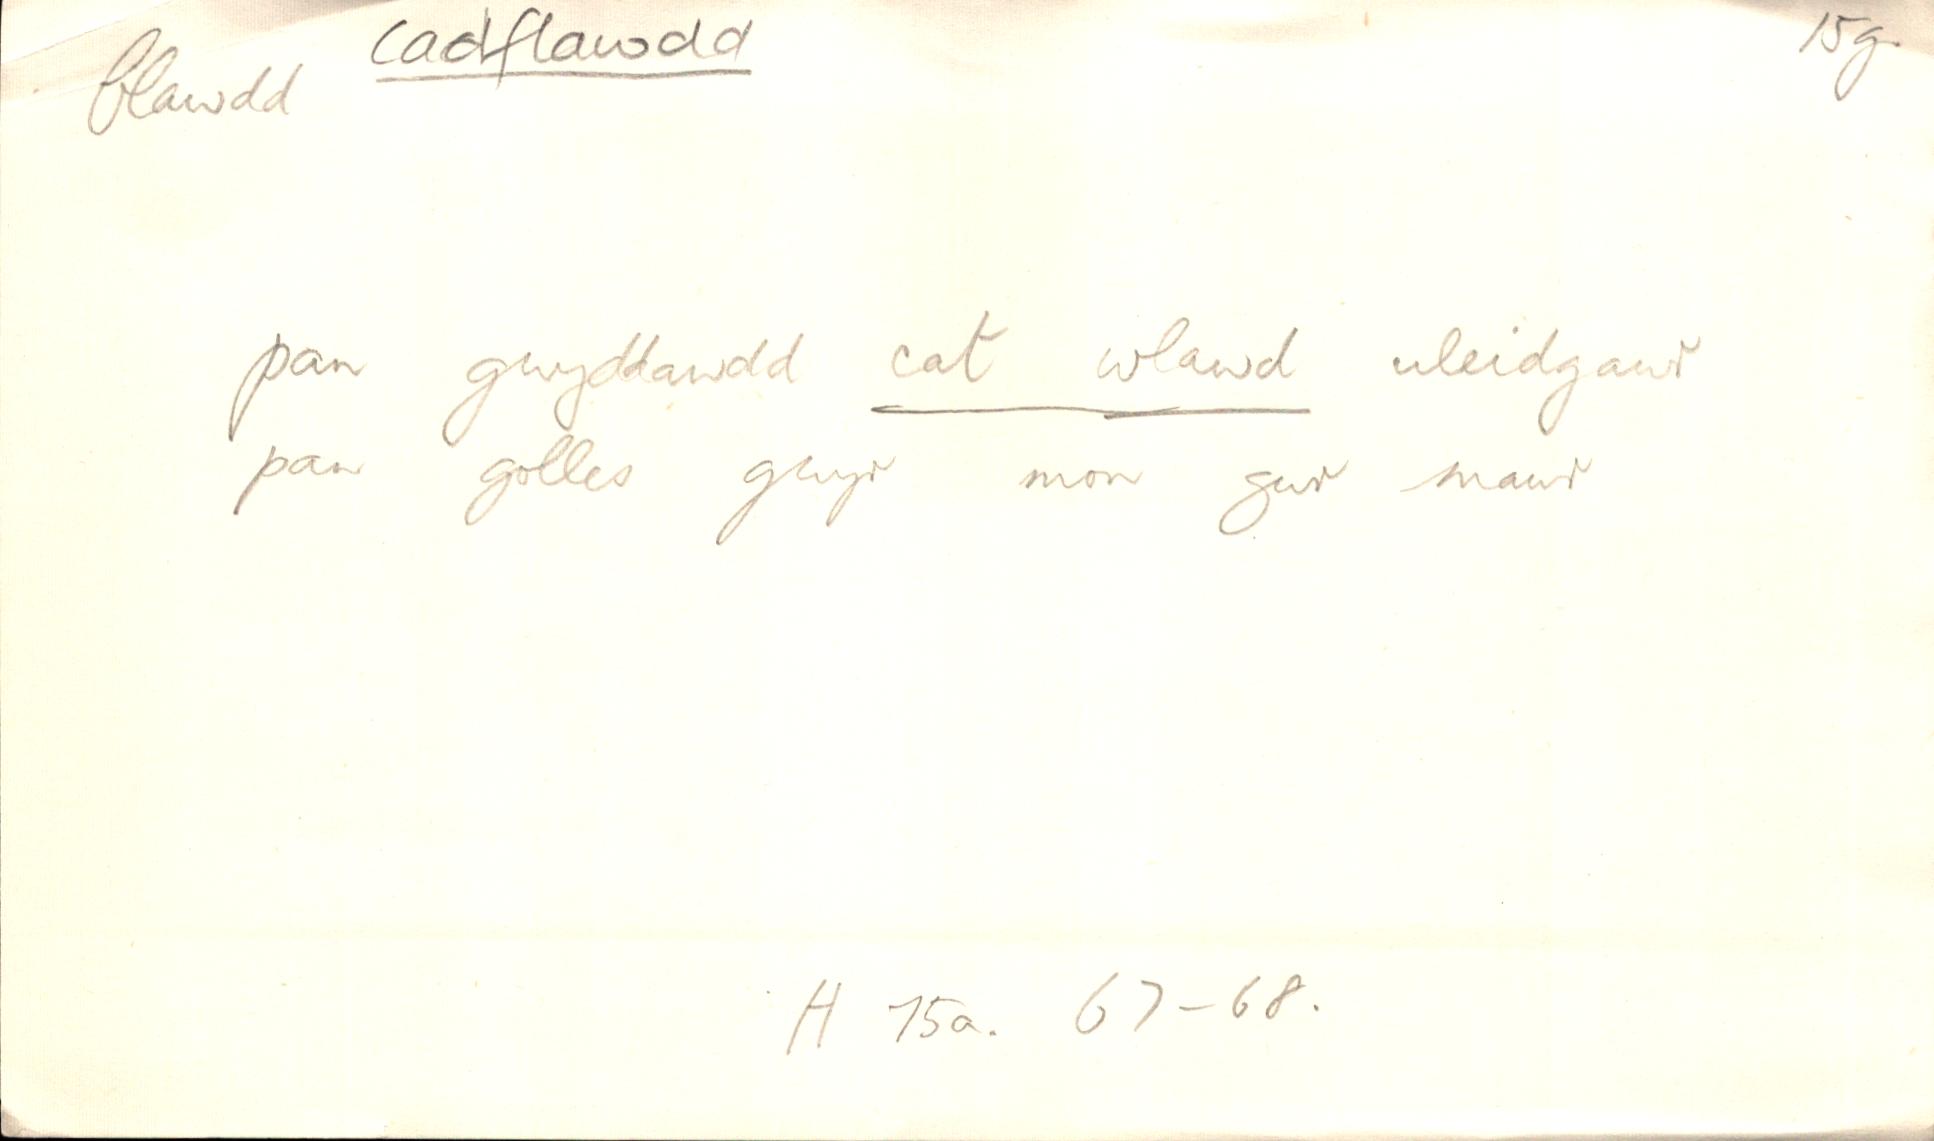 cadflawdd 15g.
blawdd
pan gwyddawdd cat wlawd uleidgawr
pan golles gwyr mon gur mawr
H 75a. 67-68.